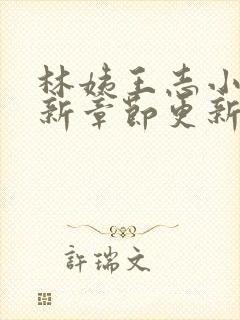 林姨王志小
新章節更新
許瑞文